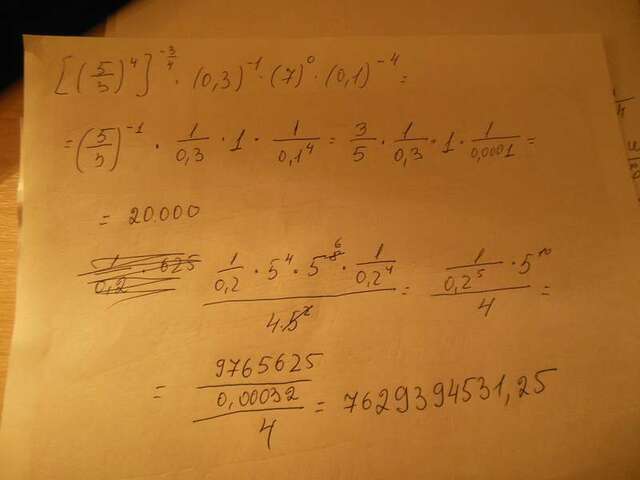 [(5/3)⁴]^(-3/4) · (0,3)⁻¹ · (7)⁰ · (0,1)⁻⁴ =
= (5/3)⁻¹ · 1/0,3 · 1 · 1/0,1⁴ = 3/5 · 1/0,3 · 1 · 1/0,0001 =
= 20.000
(1/0,2 · 5⁴ · 5⁶ · 1/0,2⁴)/(4·5²) = (1/0,2⁵ · 5¹⁰)/4 =
= (9765625/0,00032)/4 = 7629394531,25